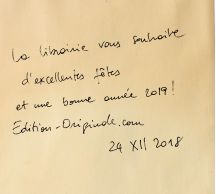 La librairie vous souhaite
d'excellentes fêtes
et une bonne année 2019!
Edition-Originale.com
24 XII 2018